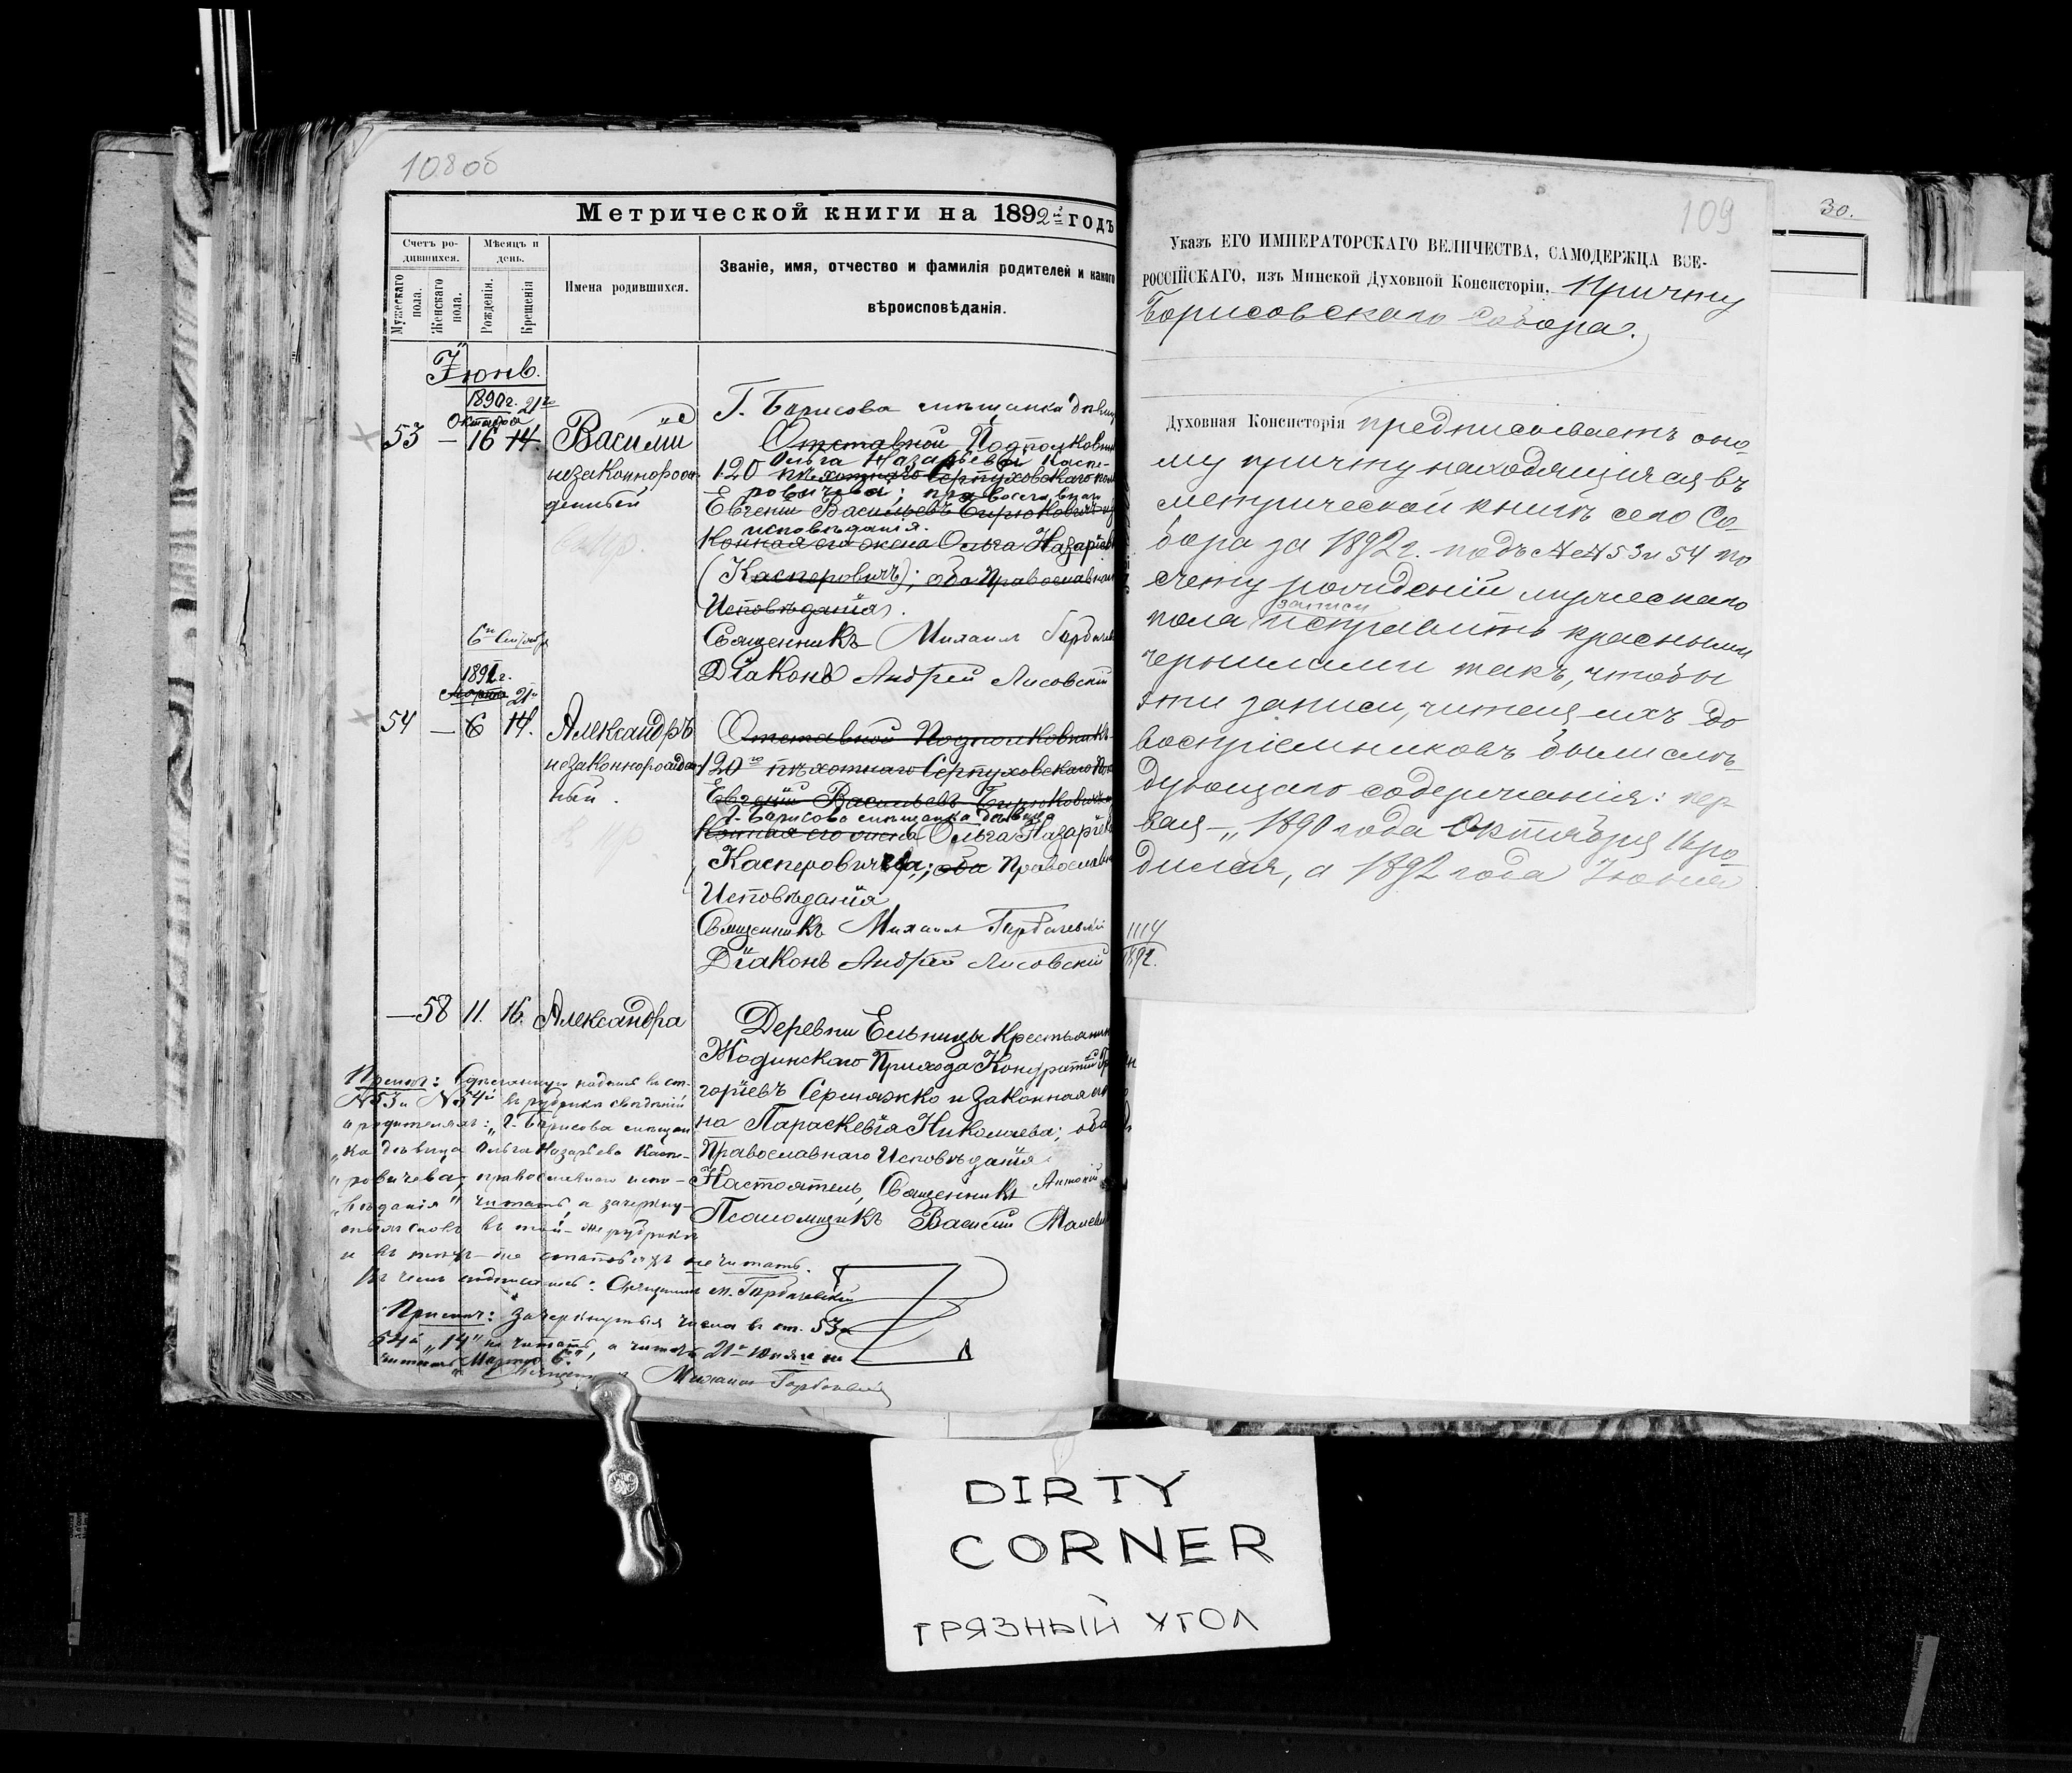 108об
Метрической книги на 1892й годъ
Счетъ ро-
дившихся.
Мѣсяцъ и
день.
Мужескаго
пола.
Женскаго
пола.
Рожденія.
Крещенія
Имена родившихся.
Званіе, имя, отчество и фамилія родителей и какого
вѣроисповѣданія.
Іюнь.
1890 г. 21го
Октября
53 — 16 14.
Василій
незаконнорож-
денный
Г. Борисова мѣщанка дѣвица
Отставной Подполковникъ
Ольга Назарьева Каспе-
120 пѣхотнаго Серпуховскаго полка
ровичева; православнаго
Евгеній Васильевъ Бирюковичъ
исповѣданія.
Конная его жена Ольга Назарьева
(Касперовичъ); оба Православнаго
Исповѣданія.
Священникъ Михаилъ Горбачевскій
Діаконъ Андрей Лисовскій
6го Октября
1891 г.
Марта 21го
54 — 6 14.
Александръ
незаконнорожден-
ный.
Отставной Подполковникъ
120го пѣхотнаго Серпуховскаго полка
Евгеній Васильевъ Бирюковичъ
г. Борисова мѣщанка дѣвица
Конная его жена Ольга Назарьева
Касперовичева; оба Православнаго
Исповѣданія
Священникъ Михаилъ Горбачевскій
Діаконъ Андрей Лисовскій
— 58 11. 16. Александра
Деревни Ельницы Крестьянинъ
Жодинскаго Прихода Кондратій Гри-
горіевъ Сермяжко и законная же-
на Параскевія Николаева; оба
Православнаго Исповѣданія
Настоятель, Священникъ Антоній
Псаломщикъ Василій
Примѣч: Сдѣланную надпись въ ст.
N53 и N54й въ рубрикѣ свѣдѣній
о родителяхъ: „г. Борисова мѣщан-
„ка дѣвица Ольга Назарьева Каспе-
„ровичева, православнаго испо-
„вѣданія" читать, а зачеркну-
тыхъ словъ въ той-же рубрикѣ
и въ тѣхъ-же статьяхъ не читать.
Въ чемъ подписались: Священникъ М. Горбачевскій
Примѣч: Зачеркнутыя числа въ ст. 53и
54й „14" не читать, а читать 21го Іюня и не
читать Марта 6го
Священникъ Михаилъ Горбачевскій
30.
109
Указъ ЕГО ИМПЕРАТОРСКАГО ВЕЛИЧЕСТВА, САМОДЕРЖЦА ВСЕ-
РОССІЙСКАГО, изъ Минской Духовной Консисторіи, Причту
Борисовскаго Собора.
Духовная Консисторія предписываетъ оно-
му причту находящіяся въ
метрической книгѣ сего Со-
бора за 1892 г. подъ №№ 53 и 54 по
счету рожденій мужескаго
записи
пола исправить красными
чернилами такъ, чтобы
эти записи, читая ихъ до
воспріемниковъ были слѣ-
дующаго содержанія: пер-
вая—„1890 года Октября 16 ро-
дился, а 1892 года Іюня
1114
1892.
DIRTY
CORNER
ГРЯЗНЫЙ УГОЛ